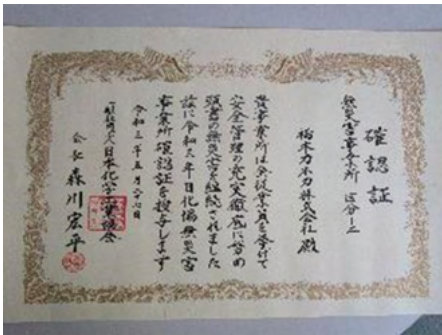 確認証
無災害事業所 区分ー2
栃木カネカ株式会社 殿
貴事業所は全従業員を挙げて
安全管理の充実徹底に努め
頭書の無災害を継続されました
茲に令和三年日化協無災害
事業所確認証を授与します
令和三年五月二十七日
一般社団法人 日本化学工業協会
会長 森川宏平